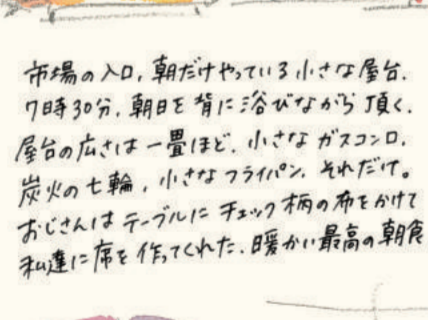 市場の入口、朝だけやっている小さな屋台。
7時30分、朝日を背に浴びながら頂く。
屋台の広さは一畳ほど。小さなガスコンロ、
炭火の七輪、小さなフライパン、それだけ。
おじさんはテーブルにチェック柄の布をかけて
私達に席を作ってくれた。暖かい最高の朝食